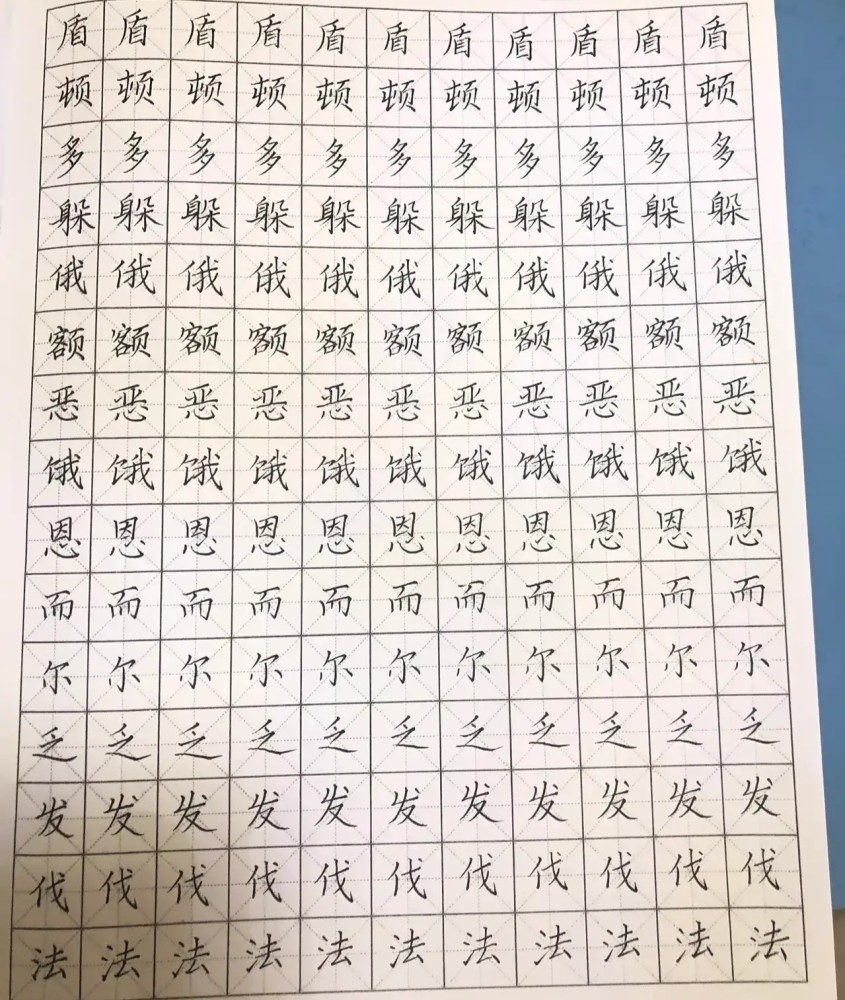 盾盾盾盾盾盾盾盾盾盾盾
顿顿顿顿顿顿顿顿顿顿顿
多多多多多多多多多多多
躲躲躲躲躲躲躲躲躲躲躲
俄俄俄俄俄俄俄俄俄俄俄
额额额额额额额额额额额
恶恶恶恶恶恶恶恶恶恶恶
饿饿饿饿饿饿饿饿饿饿饿
恩恩恩恩恩恩恩恩恩恩恩
而而而而而而而而而而而
尔尔尔尔尔尔尔尔尔尔尔
乏乏乏乏乏乏乏乏乏乏乏
发发发发发发发发发发发
伐伐伐伐伐伐伐伐伐伐伐
法法法法法法法法法法法